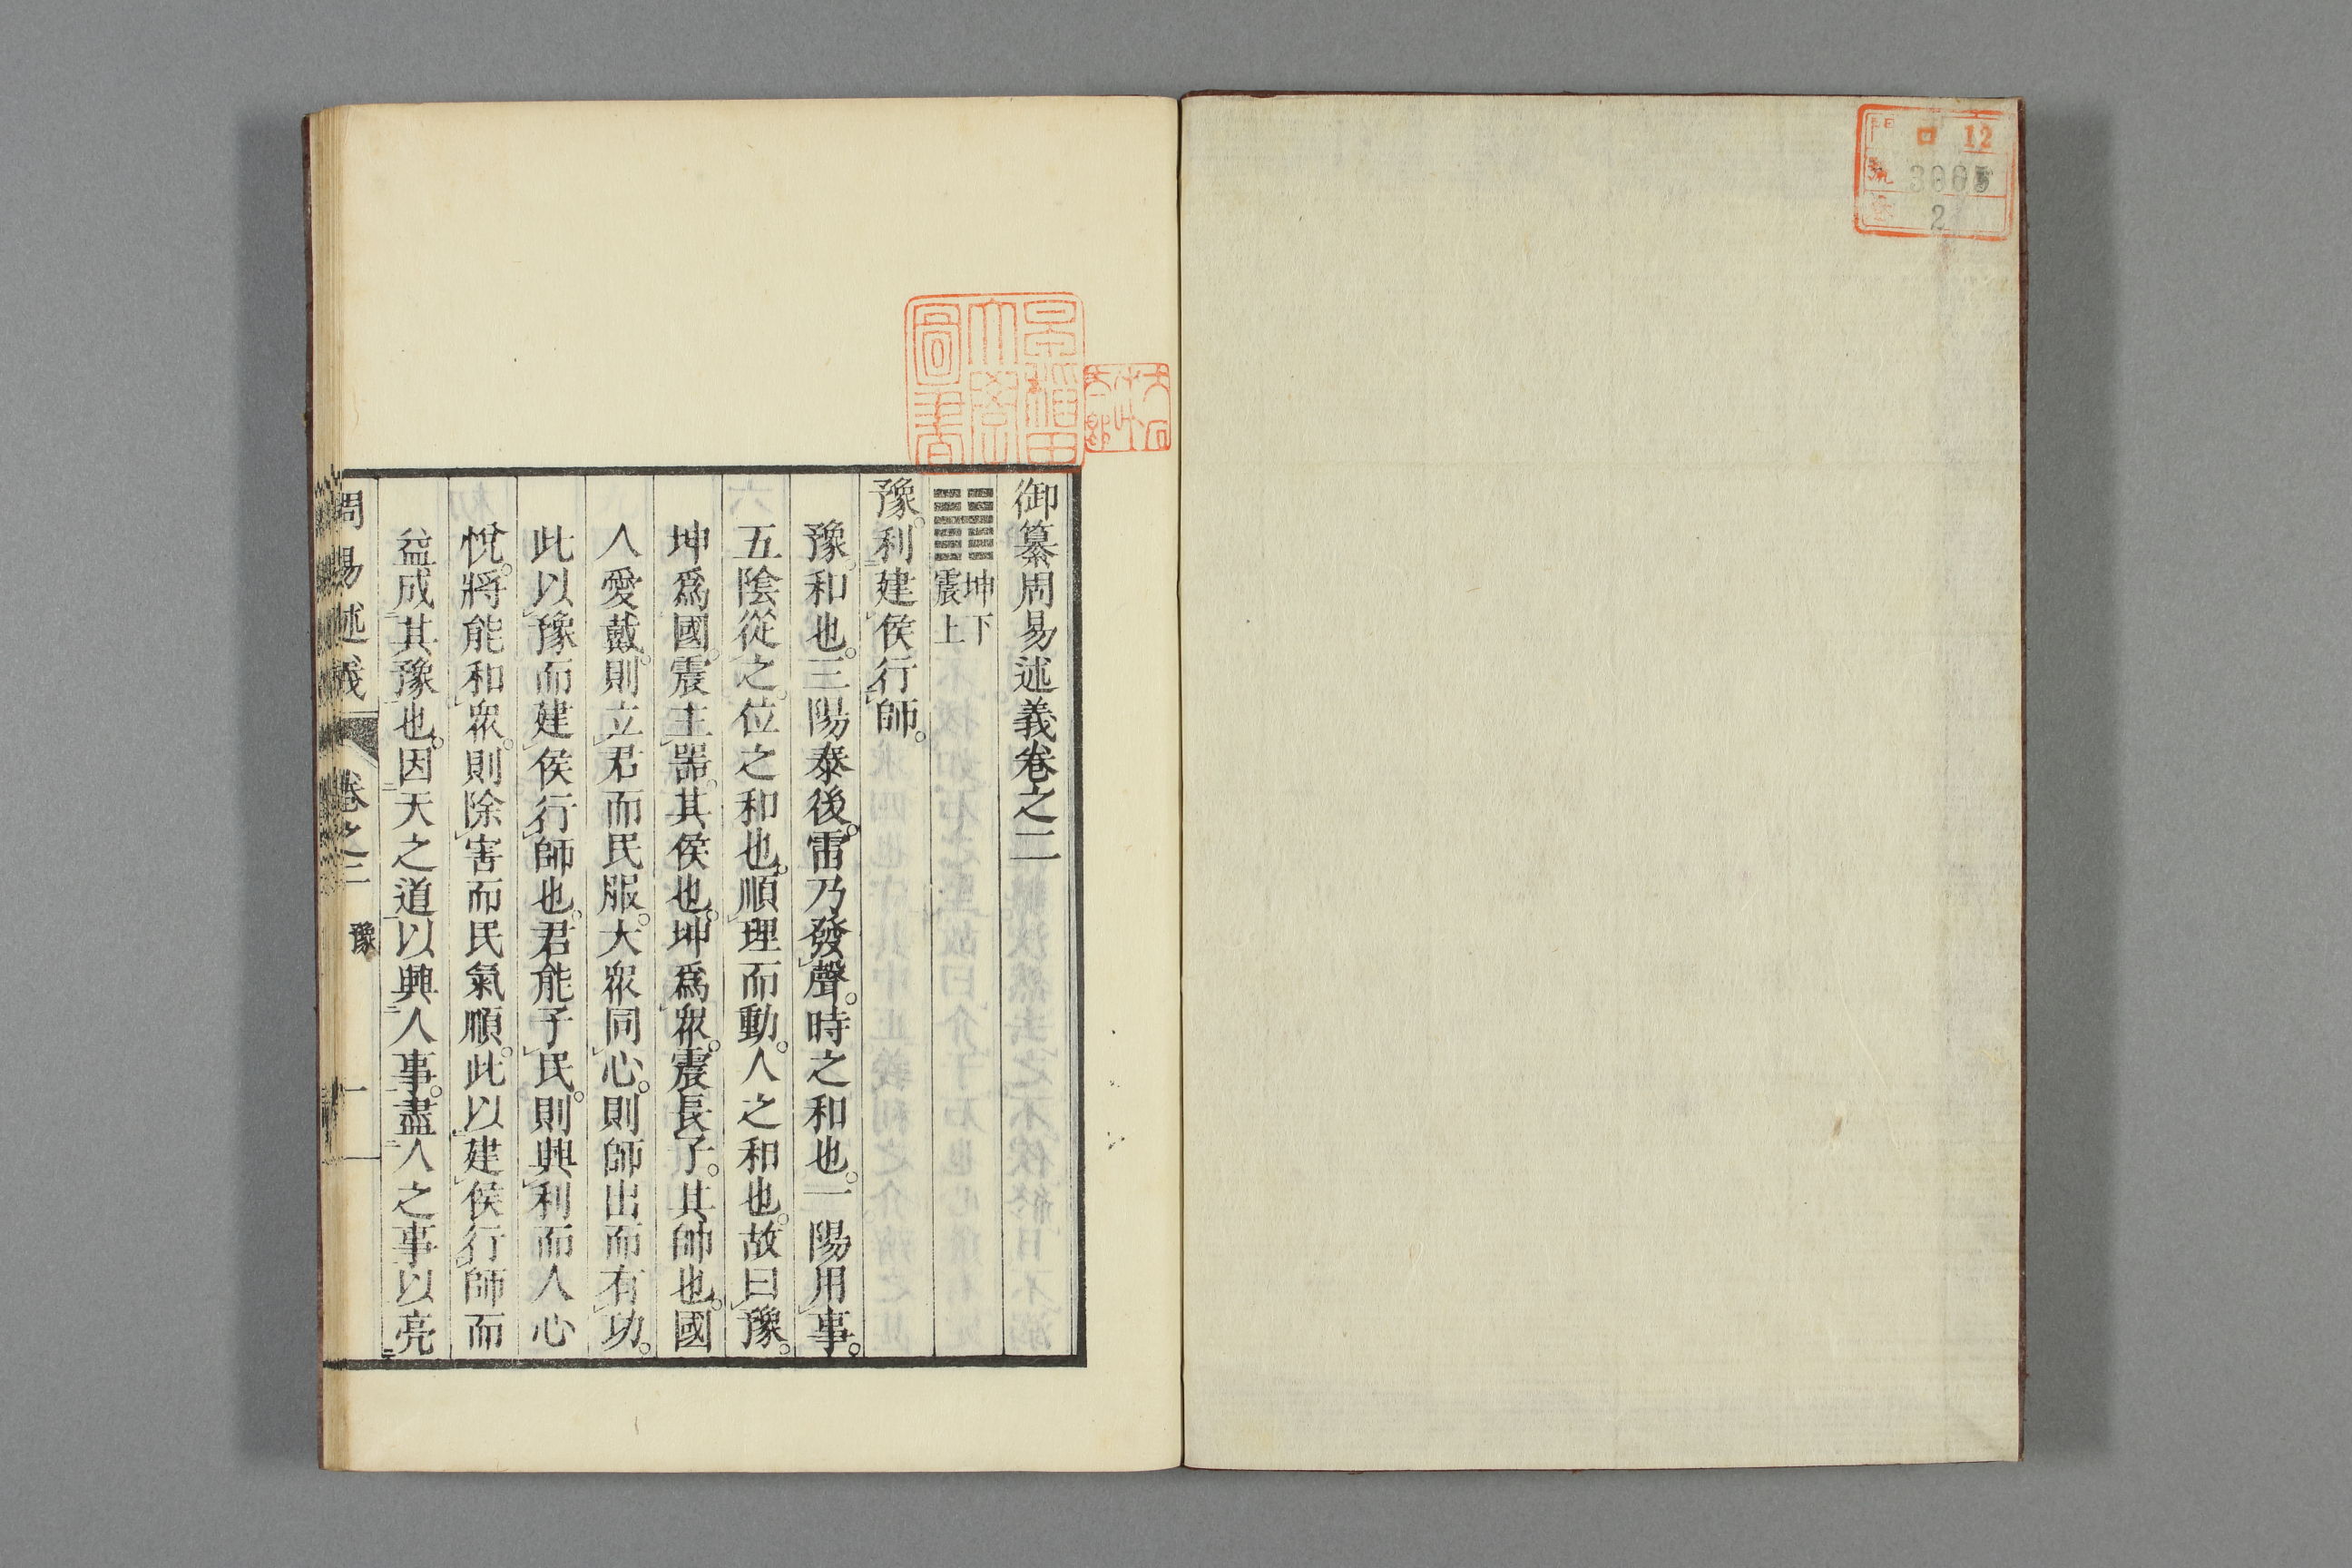 門 ロ 12
號 3005
卷 2
早稻田
大學
圖書
御纂周易述義卷之二
坤下
震上
豫。利建侯行師。
豫。和也。三陽泰後。雷乃發聲。時之和也。一陽用事。
五陰從之。位之和也。順理而動。人之和也。故曰豫。
坤爲國。震主器。其侯也。坤爲衆。震長子。其帥也。國
人愛戴。則立君而民服。大衆同心。則師出而有功。
此以豫而建侯行師也。君能子民。則興利而人心
悅。將能和衆。則除害而民氣順。此以建侯行師而
益成其豫也。因天之道以興人事。盡人之事以亮
周易述義 卷之二 豫 一